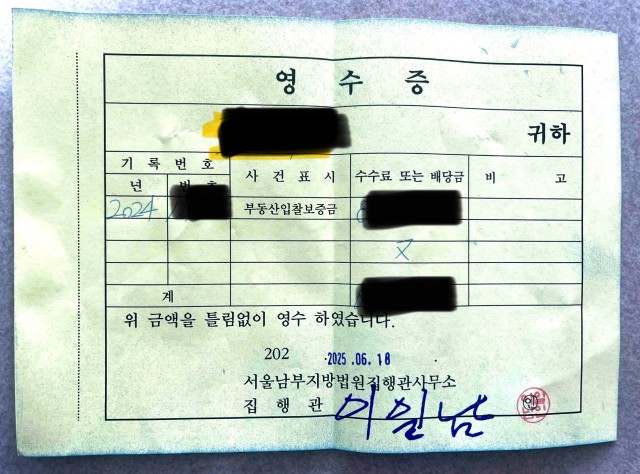 영 수 증
귀하
기 록 번 호 사 건 표 시 수수료 또는 배당금 비 고
년
2024 부동산입찰보증금
X
계
위 금액을 틀림없이 영수 하였습니다.
202 2025.06.18 .
서울남부지방법원집행관사무소
집 행 관 이일남 인